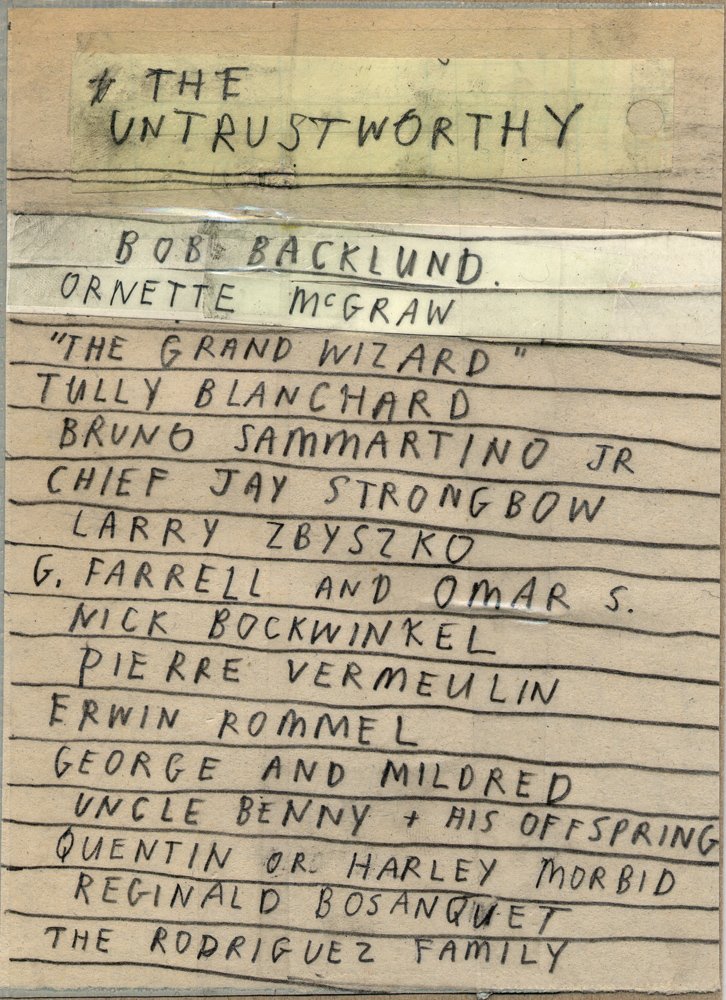 THE
UNTRUSTWORTHY
BOB BACKLUND.
ORNETTE McGRAW
"THE GRAND WIZARD"
TULLY BLANCHARD
BRUNO SAMMARTINO JR
CHIEF JAY STRONGBOW
LARRY ZBYSZKO
G. FARRELL AND OMAR S.
NICK BOCKWINKEL
PIERRE VERMEULIN
ERWIN ROMMEL
GEORGE AND MILDRED
UNCLE BENNY + HIS OFFSPRING
QUENTIN OR HARLEY MORBID
REGINALD BOSANQUET
THE RODRIGUEZ FAMILY